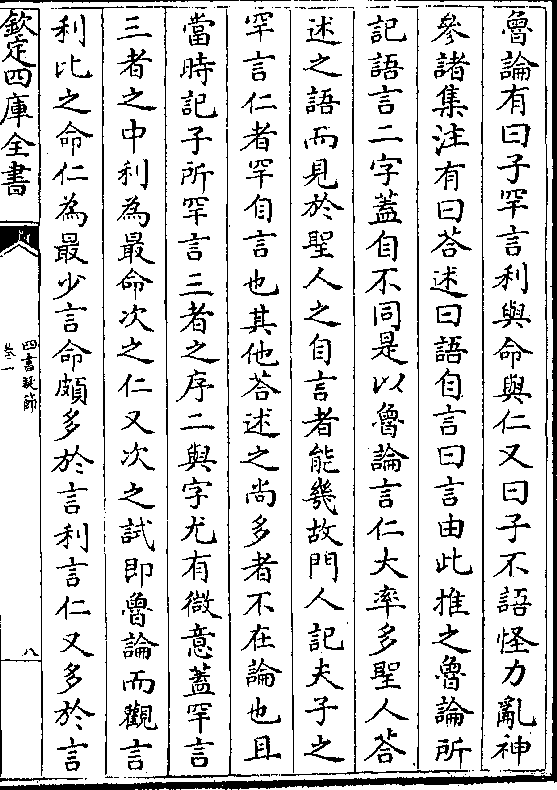 魯論有曰子罕言利與命與仁又曰子不語怪力亂神
參諸集注有曰荅述曰語自言曰言由此推之魯論所
記語言二字蓋自不同是以魯論言仁大率多聖人荅
述之語而見於聖人之自言者能幾故門人記夫子之
罕言仁者罕自言也其他荅述之尚多者不在論也且
當時記子所罕言三者之序二與字尤有微意蓋罕言
三者之中利為最命次之仁又次之試即魯論而觀言
利比之命仁為最少言命頗多於言利言仁又多於言
欽定四庫全書
四書疑節
卷一
八